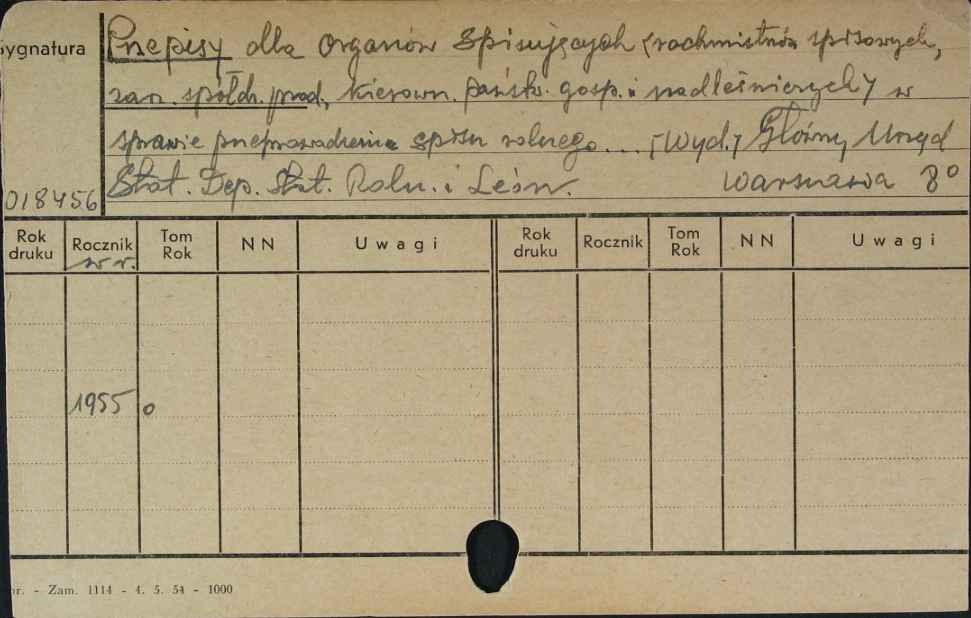 ygnatura
Przepisy dla organów spisujących (rachmistrzów spisowych,
zarz. spółdz. prod., kierown. państw. gosp. i nadleśniczych) w
sprawie przeprowadzenia spisu rolnego... [Wyd.] Główny Urząd
018456 Stat. Dep. Stat. Roln. i Leśn. Warszawa 8°
Rok druku Rocznik Tom Rok NN Uwagi Rok druku Rocznik Tom Rok NN Uwagi
w r.
1955 o
r. - Zam. 1114 - 4. 5. 54 - 1000